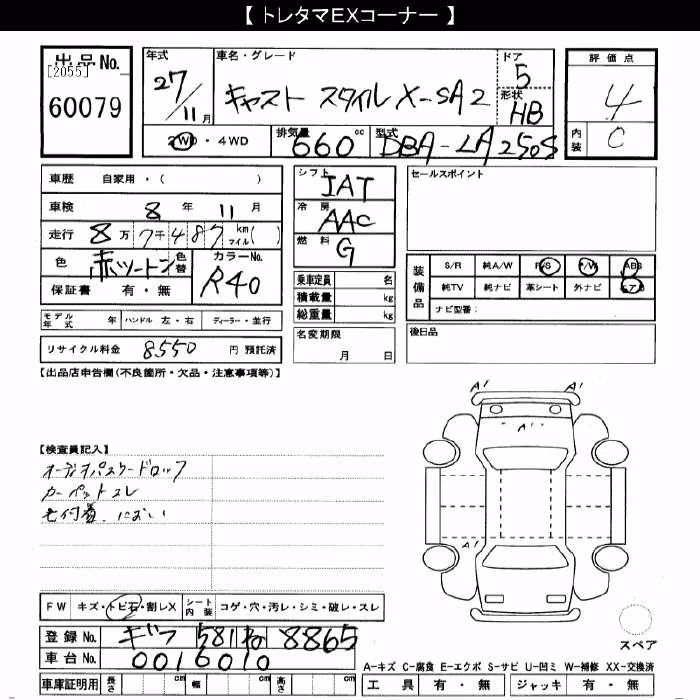 【 トレタマEXコーナー 】
出品No.
[2055]
60079
年式
27/11月
車名・グレード
キャスト スタイル X-SA2
ドア
5
形状
HB
評価点
4
内装
C
2WD・4WD
排気量
660 cc
型式
DBA-LA250S
車歴 自家用・( )
車検 8 年 11 月
走行 8万7千487 km マイル( )
色 赤ツートン 色替
カラーNo.
R40
保証書 有・無
シフト
IAT
冷房
AAC
燃料
G
乗車定員 名
積載量 kg
総重量 kg
セールスポイント
装備品
S/R 純A/W P/S P/W ABS
純TV 純ナビ 革シート 外ナビ エアB
ナビ型番:
モデル年式 年 ハンドル 左・右 ディーラー・並行
リサイクル料金 8550 円 預託済
名変期限
月 日
後日品
【出品店申告欄(不良箇所・欠品・注意事項等)】
A' A'
A'
A'
【検査員記入】
オーディオパスワードロック
カーペットスレ
毛付着、におい
FW キズ・トビ石・割レX シート内装 コゲ・穴・汚レ・シミ・破レ・スレ
登録No. ギフ 581 ね 8865
車台No. 0016010
車庫証明用 長さ cm 幅 cm 高さ cm
スペア
A-キズ C-腐食 E-エクボ S-サビ U-凹ミ W-補修 XX-交換済
工具 有・無 ジャッキ 有・無